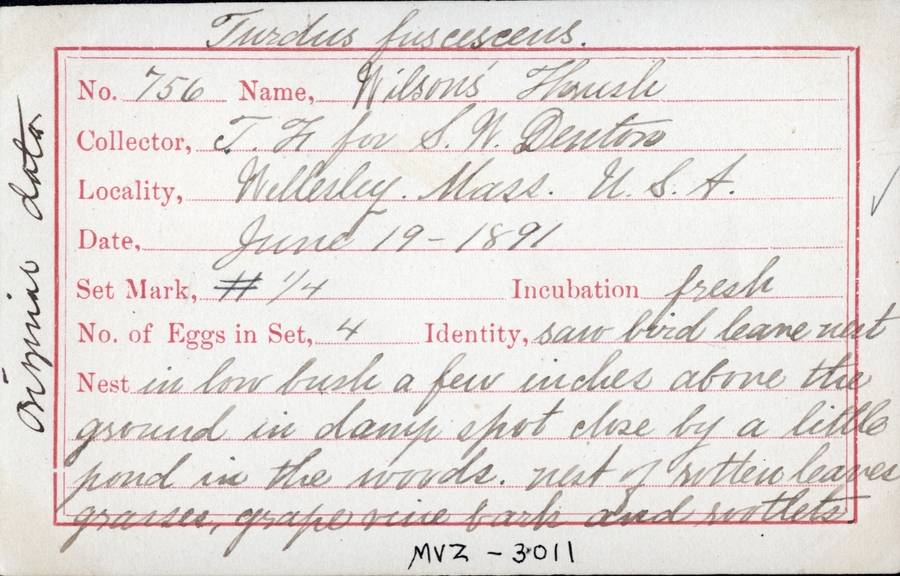 Turdus fuscescens.
No. 756 Name, Wilsons' Thrush
Collector, T. H for S. W. Denton
Locality, Wellesley. Mass. U. S. A.
Date, June 19 - 1891
Set Mark, # 1/4 Incubation fresh
No. of Eggs in Set, 4 Identity, saw bird leave nest
Nest in low bush a few inches above the
ground in damp spot close by a little
pond in the woods. nest of rotten leaves
grasses, grape vine bark and rootlets
MVZ - 3011
Original data